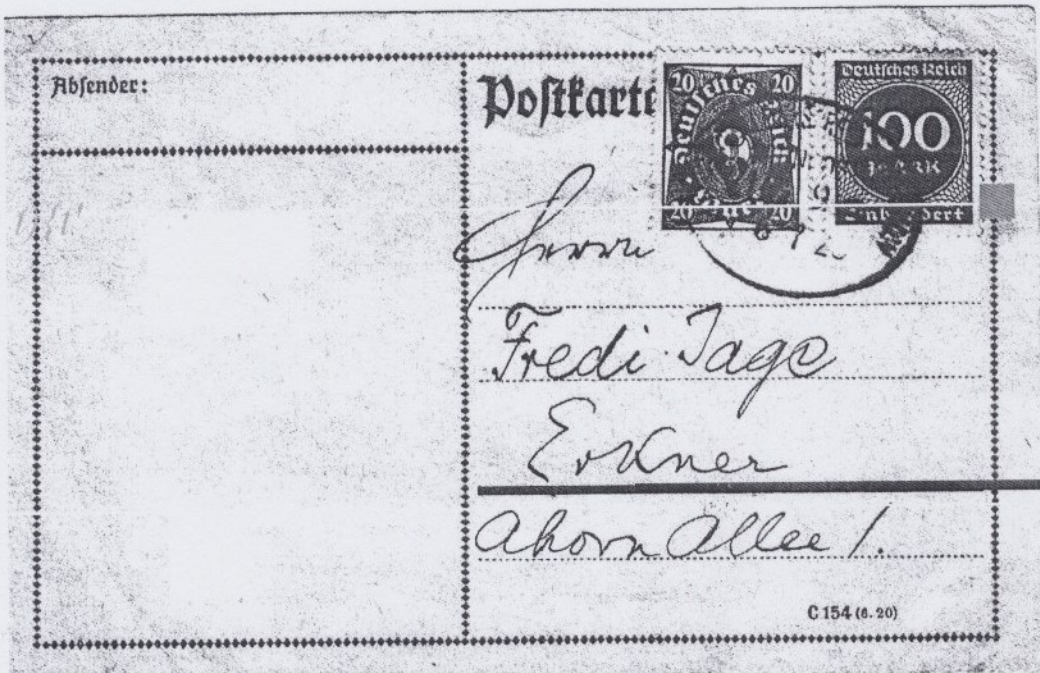 Absender:
Postkarte
20 20
Deutsches Reich
20 20
Deutsches Reich
100
MARK
Einhundert
6 7 2
Herrn
Fredi Tage
Erkner
Ahorn Allee 1.
C 154 (6. 20)